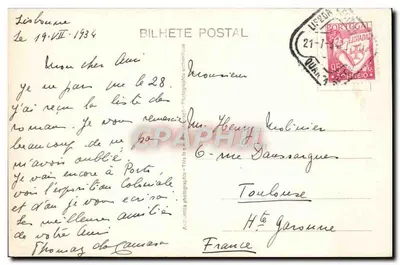 Lisbonne
le 19-VII-1934
BILHETE POSTAL
Mon cher Ami
Je ne pars que le 28.
J'ai reçu la liste des
romans. Je vous remercie
beaucoup de ne pas
m'avoir oublié.
Je vais encore à Porto,
voir l'exposition Coloniale
et d'où je vous écrirai.
Les meilleures amitiés
de votre Ami
Thomaz da
Monsieur
Mr. Henry Molinier
6-rue Daussargues
Toulouse
Hte Garonne
France
LISBOA
21-7
PORTUGAL
CPARPHIL